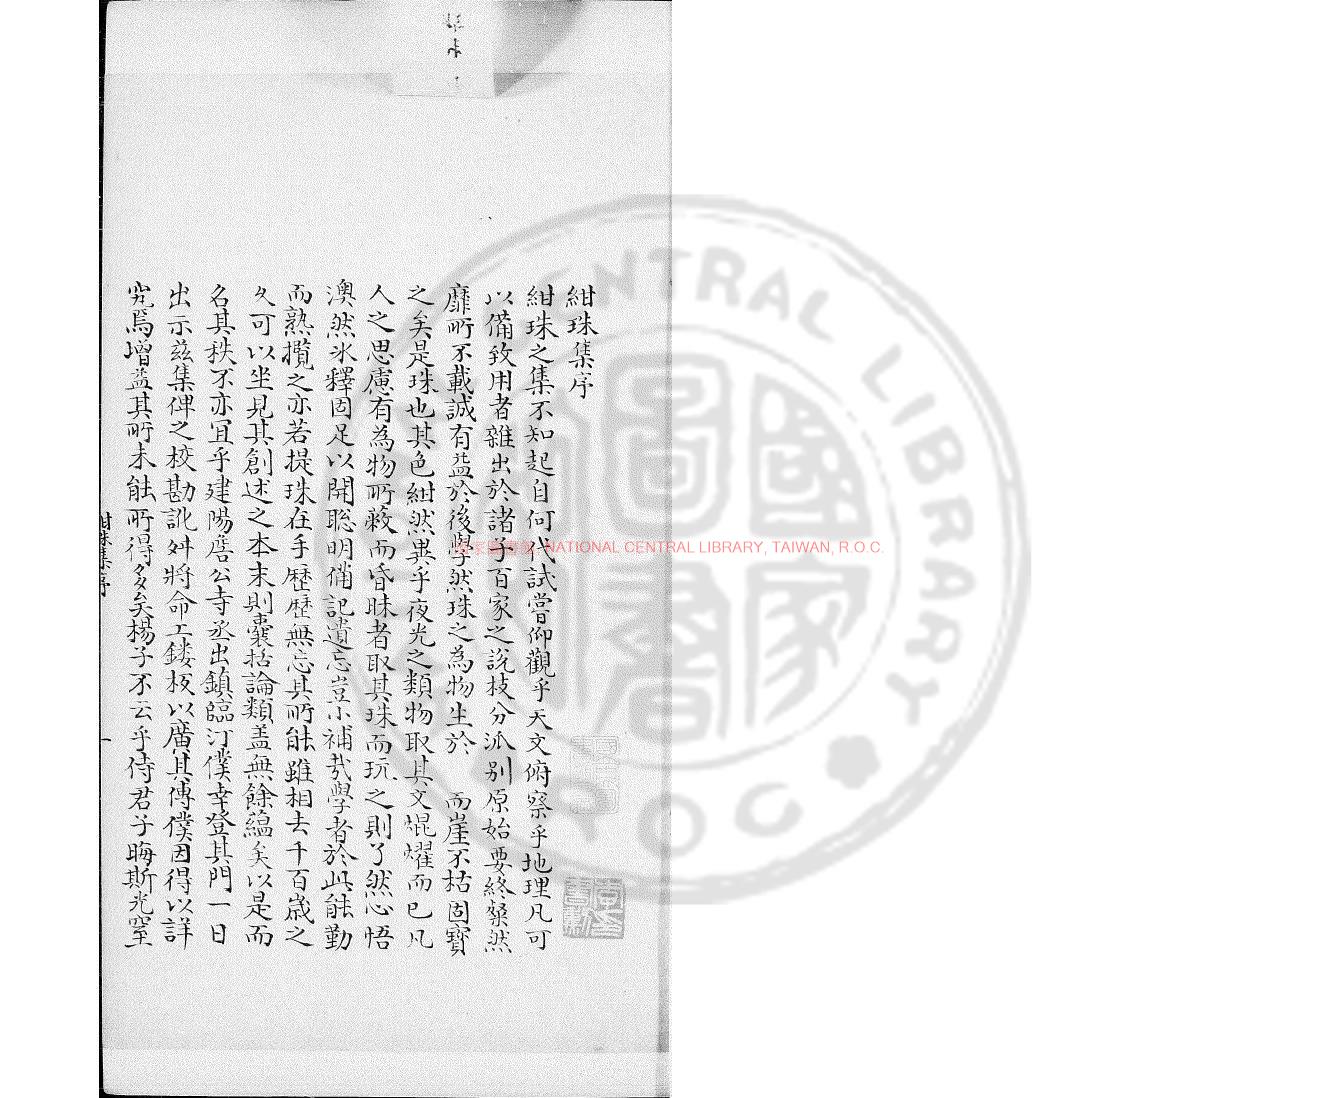 紺珠集序
紺珠之集不知起自何代試嘗仰觀乎天文俯察乎地理凡可
以備致用者雜出於諸子百家之說枝分派别原始要終粲然
靡所不載誠有益於後學然珠之為物生於 而崖不枯固寶
之矣是珠也其色紺然異乎夜光之類物取其文焜燿而已凡
人之思慮有為物所蔽而昏昧者取其珠而玩之則了然心悟
澳然氷釋固足以開聡明備記遺忘豈小補㦲學者於此能勤
而熟攬之亦若提珠在手歷歷無忘其所能雖相去千百歲之
久可以坐見其創述之本末則囊括論類盖無餘藴矣以是而
名其秩不亦冝乎建陽詹公寺丞出鎮臨汀僕幸登其門一日
出示兹集俾之校勘訛舛將命工鏤板以廣其傳僕因得以詳
究焉增益其所未能所得多矣楊子不云乎侍君子晦斯光窒
紺珠集序
一
國家圖書館 NATIONAL CENTRAL LIBRARY, TAIWAN, R.O.C.
NATIONAL CENTRAL LIBRARY ROC
國家圖書館